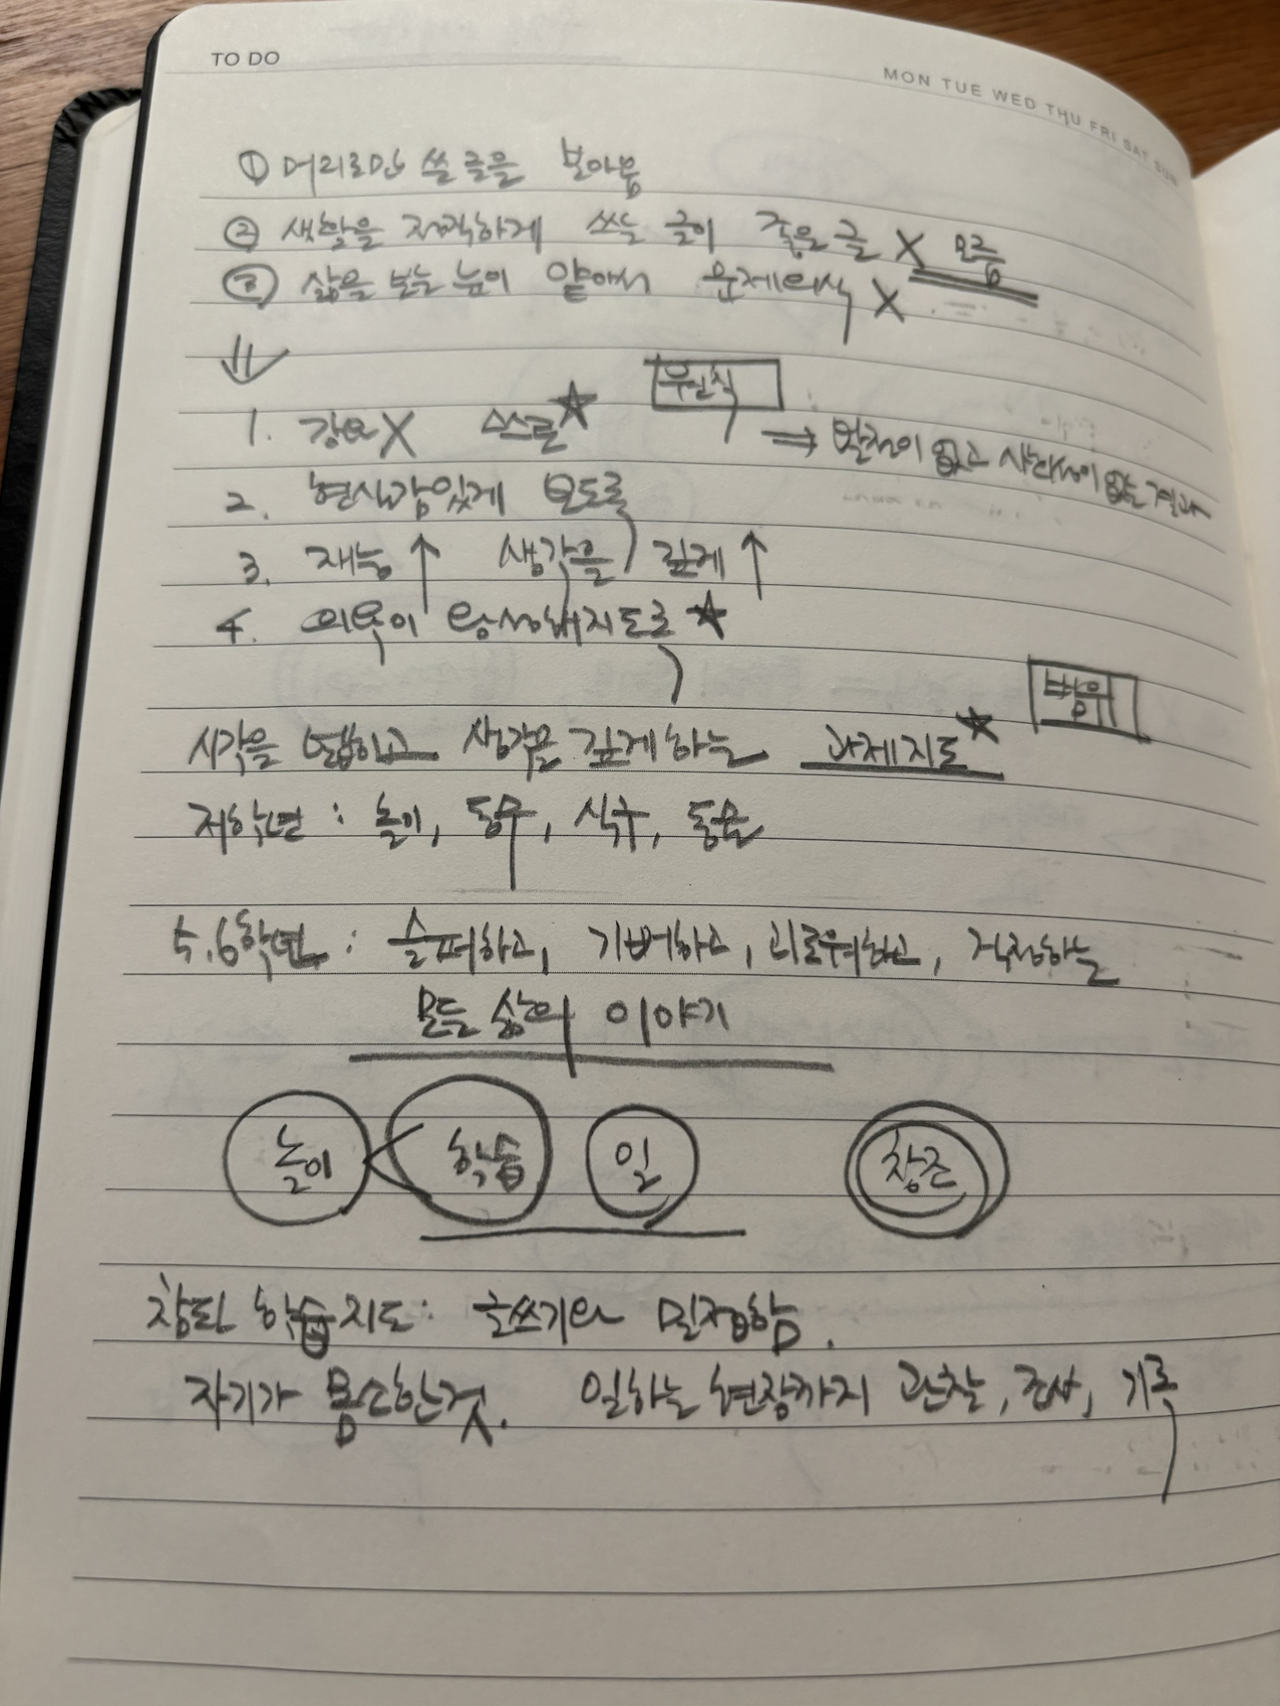 TO DO
MON TUE WED THU FRI SAT SUN
① 머리로만 쓸 글을 보아옴
② 생활을 정직하게 쓰는 글이 좋은 글 X 모름
③ 삶을 보는 눈이 얕아서 문제의식 X
무원칙
1. 강요X 스스로★
⇒ 발전이 없고 사회성이 없는 결과
2. 현실감있게 보도록
3. 재능↑ 생각을 깊게↑
4. 의욕이 왕성해지도록★
범위
시각을 넓히고 생각을 깊게하는 과제지도★
저학년 : 놀이, 동무, 식구, 동물
5.6학년 : 슬퍼하고, 기뻐하고, 괴로워하고, 걱정하는
모든 삶의 이야기
놀이 < 학습 일 창조
참된 학습지도: 글쓰기와 밀접함.
자기가 몸소한것. 일하는 현장까지 관찰, 조사, 기록